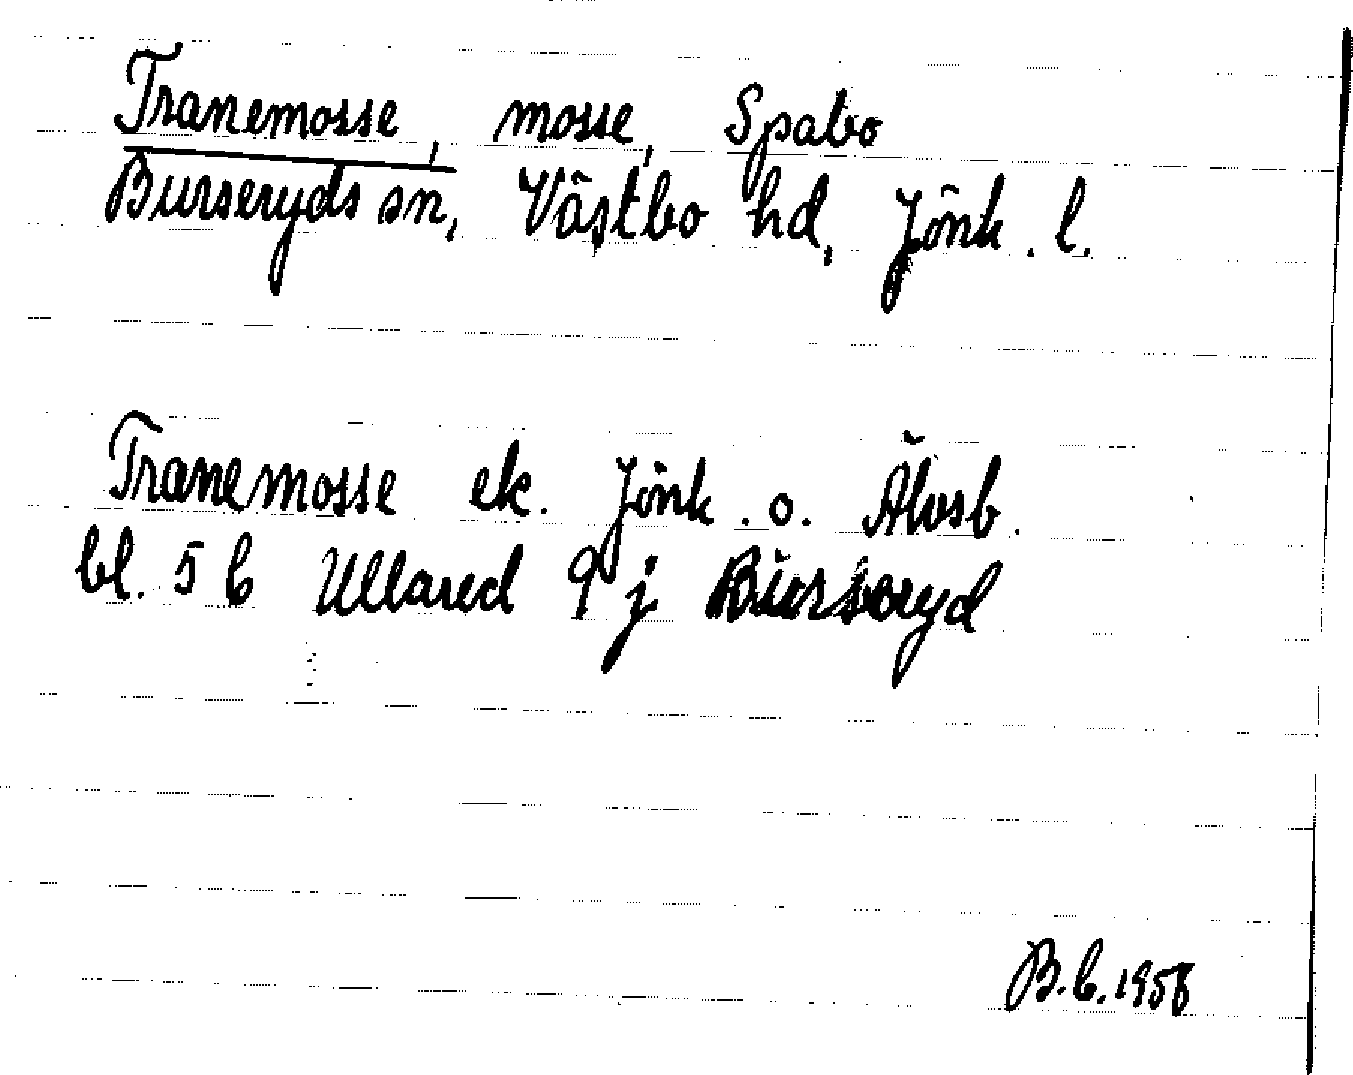 Tranemosse, mosse, Spabo
Burseryds sn, Västbo hd, Jönk. l.
Tranemosse ek. Jönk. o. Älvsb.
bl. 5 b Ullared 9 j Burseryd
B.E. 1958